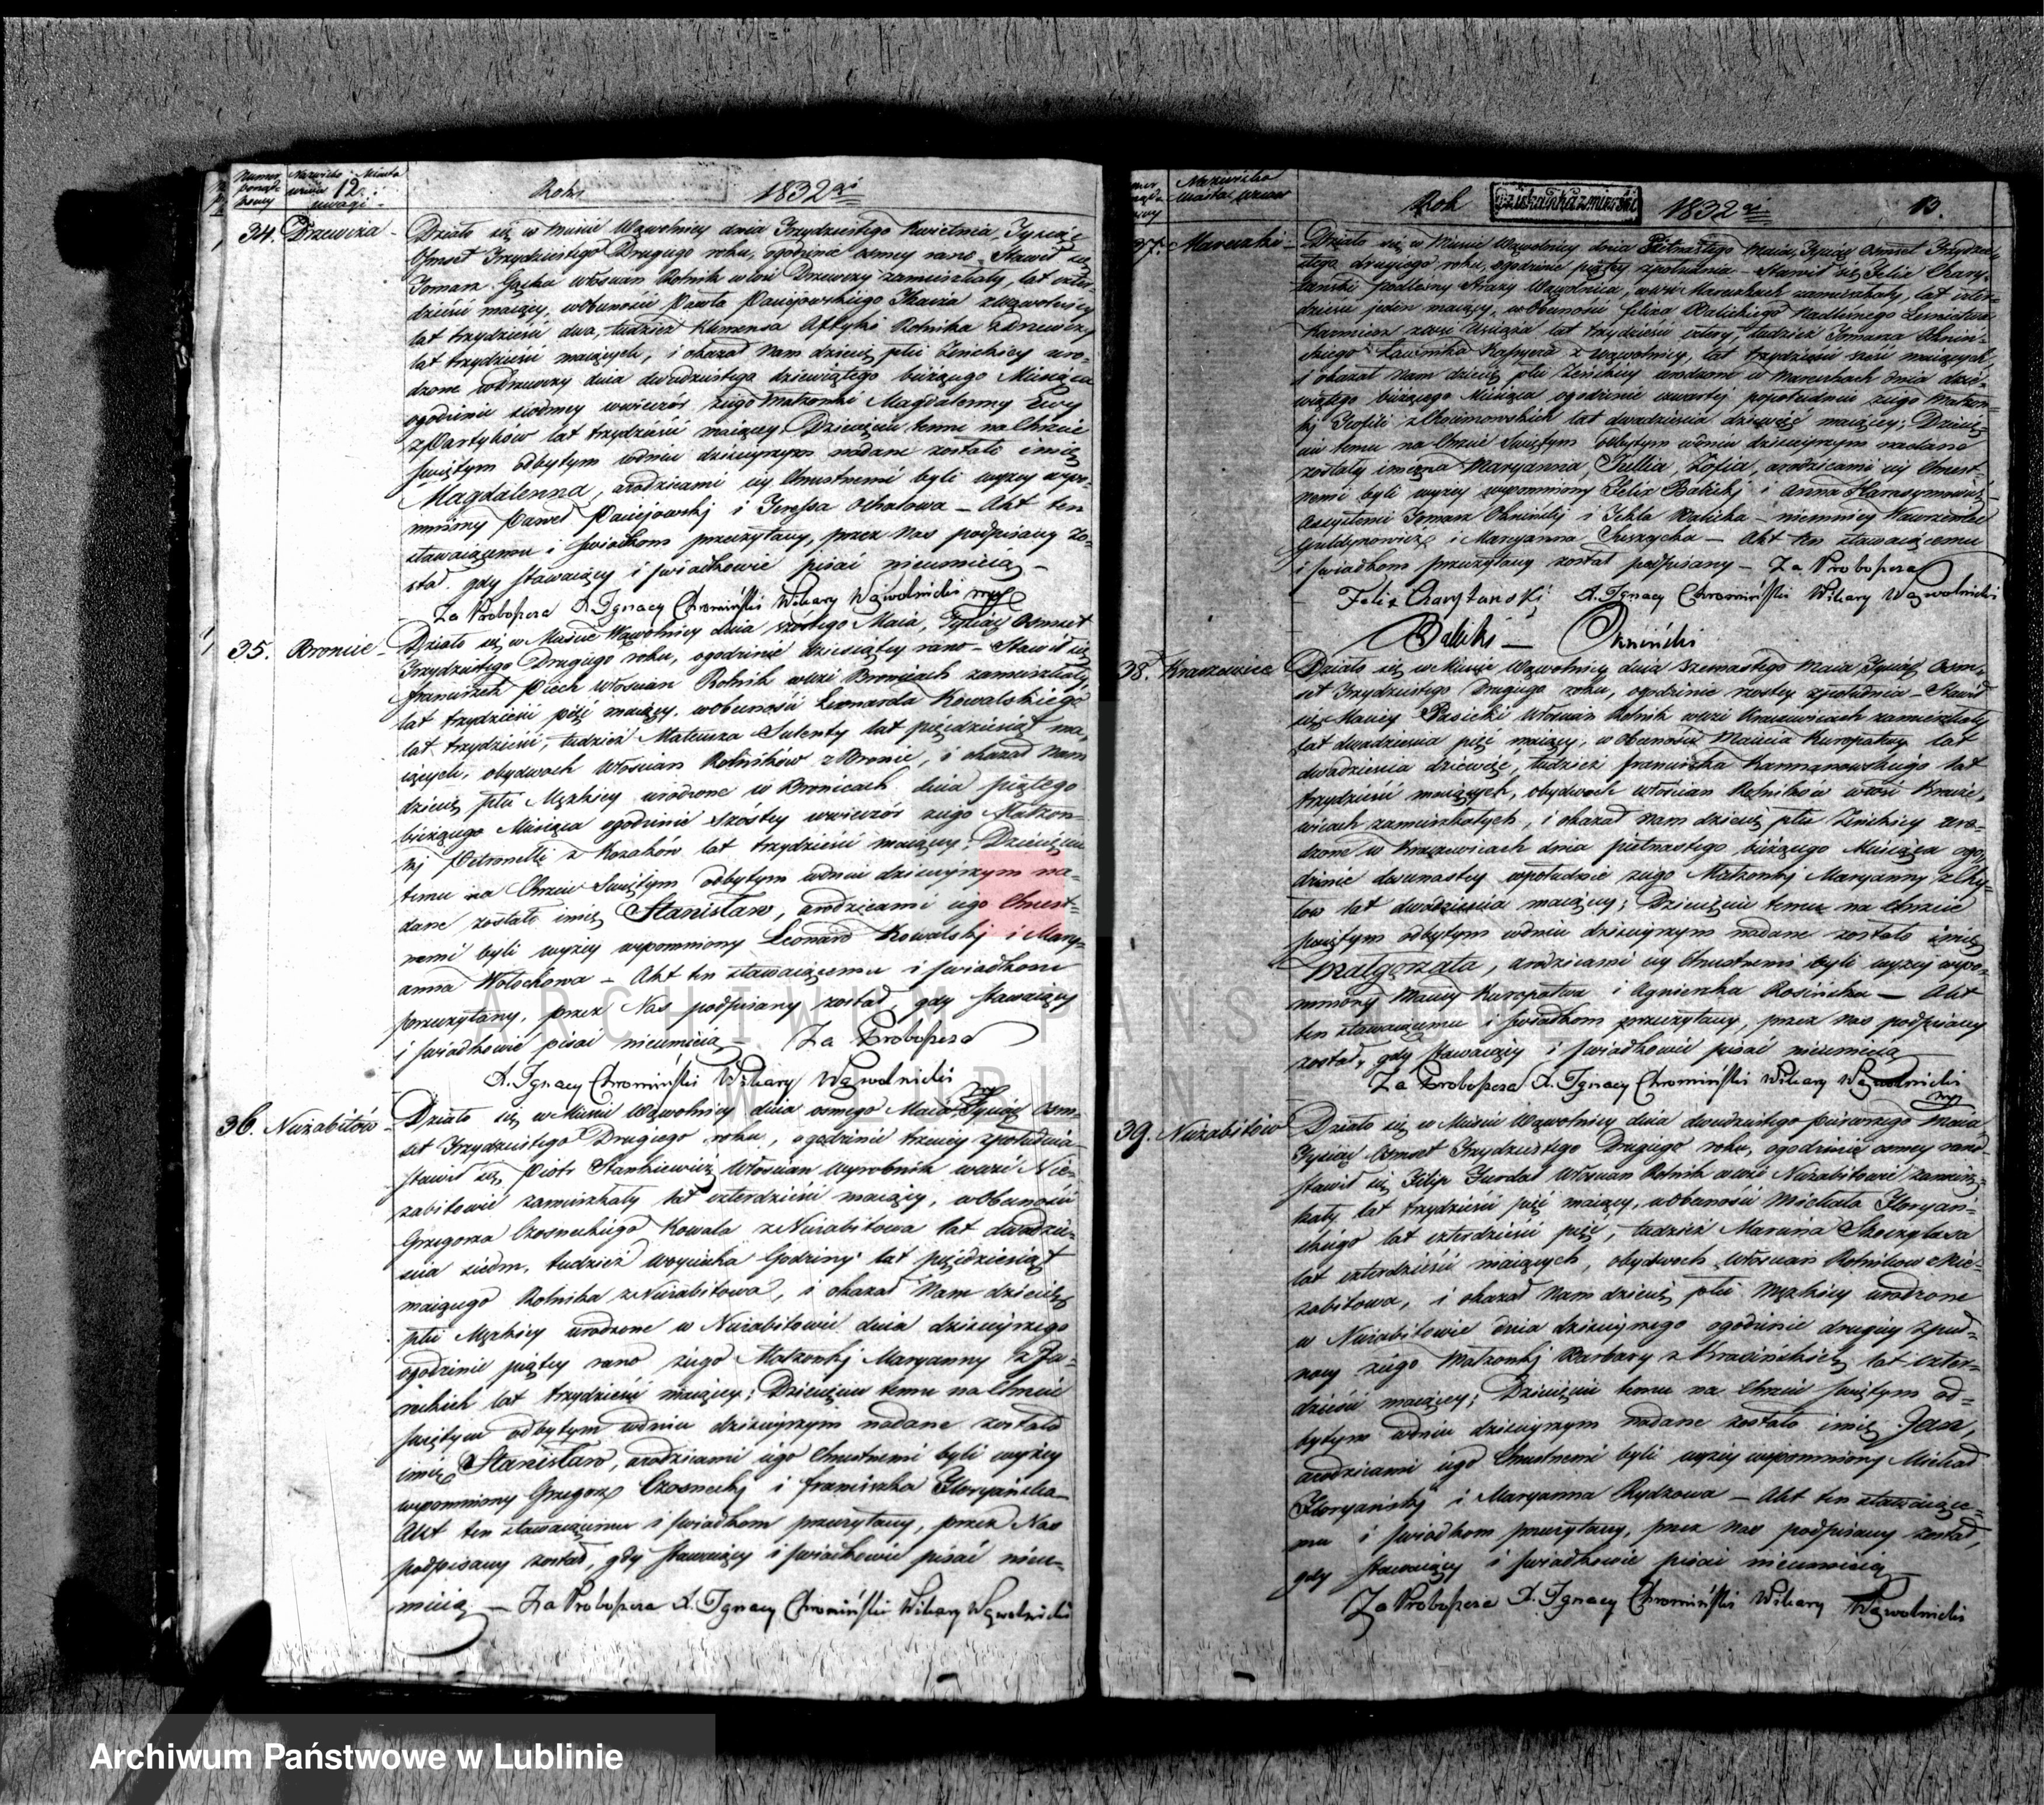 Numer porząt kowy
Nazwisko Miasta wsiów 12. uwagi
Roku 1832 go
34. Drzewcza -
Działo się w Mieście Wąwolnicy dnia Trzydziestego Kwietnia, Tysiąc
Ośmset Trzydziestego Drugiego roku, ogodzinie osmey rano - Stawił się
Tomasz Gąska włościan Rolnik wewsi Drzewczy zamieszkały, lat czter-
dzieści maiący, wobecności Pawła Paciejowskiego Tkacza zWąwolnicy
lat trzydzieści dwa, tudzież Klimensa Aftyki Rolnika zDrzewczy
lat trzydzieści maiących, i okazał Nam dziecię płci Żeńskiey uro-
dzone wDrzewczy dnia dwudziestego dziewiątego bieżącego Miesiąca
ogodzinie siódmey wwieczór zjego Małżonki Magdalenny Ewy
lat trzydzieści maiącey: Dziecięciu temu na Chrzcie
Świętym odbytym wdniu dzisieyszym nadane zostało imię
Magdalenna, arodzicami iey Chrzestnemi byli wyżey wspo-
mniony Paweł Paciejowskj i Teressa Ochalowa - Akt ten
stawaiącemu i świadkom przeczytany, przez Nas podpisany zo-
stał. gdy stawaiący i świadkowie pisać nieumieią -
Za Proboszcza X. Ignacy Chromiński Wikary Wąwolnicki mp
35. Bronice -
Działo się w Mieście Wąwolnicy dnia szóstego Maia, Tysiąc Ośmset
Trzydziestego Drugiego roku, ogodzinie dziesiątey rano - Stawił się
Franciszek Piech włościan Rolnik wewsi Bronicach zamieszkały
lat trzydzieści pięć maiący. wobecności Leonarda Kowalskiego
lat trzydzieści, tudzież Mateusza Sulenty lat pięćdziesiąt ma-
iących, obydwóch Włościan Rolników zBronic, i okazał Nam
dziecię płci Męzkiey urodzone w Bronicach dnia piątego
bieżącego Miesiąca ogodzinie szóstey wwieczór zjego Małżon-
kj Petronelli z Kozaków lat trzydzieści maiącey: Dziecięciu
temu na Chrzcie Świętym odbytym wdniu dzisieyszym na-
dane zostało imię Stanisław, arodzicami iego Chrzest-
nemi byli wyżey wspomniony Leonard Kowalskj i Mary-
anna Wołochowa - Akt ten stawaiącemu i świadkom
przeczytany, przez Nas podpisany został, gdy stawaiący
i świadkowie pisać nieumieią - Za Proboszcza
X. Ignacy Chromiński Wikary Wąwolnicki mp
36. Niezabitów -
Działo się w Mieście Wąwolnicy dnia osmego Maia, Tysiąc Ośm-
set Trzydziestego Drugiego roku, ogodzinie trzeciey zpołudnia
stawił się Piotr Stankiewicz Włościan wyrobnik wewsi Nie-
zabitowie zamieszkały lat czterdzieści maiący, wobecności
Grzegorza Czosneckiego Kowala zNiezabitowa lat dwadzie-
ścia siedm, tudzież Woyciecha Godziny lat pięćdziesiąt
maiącego Rolnika zNiezabitowa, i okazał Nam dziecię
płci Męzkiey urodzone w Niezabitowie dnia dzisieyszego
ogodzinie piątey rano zjego Małżonkj Maryanny z Ja-
reckich lat trzydzieści maiącey; Dziecięciu temu na Chrzcie
świętym odbytym wdniu dzisieyszym nadane zostało
imię Stanisław, arodzicami iego Chrzestnemi byli wyżey
wspomniony Grzegorz Czosneckj i Franciszka Floryańska
Akt ten stawaiącemu i świadkom przeczytany, przez Nas
podpisany został, gdy stawaiący i świadkowie pisać nieu-
mieią - Za Proboszcza X. Ignacy Chromiński Wikary Wąwolnicki
Rok Dziekan Kazmierski 1832 go 13.
37. Mareczki -
Działo się w Mieście Wąwolnicy dnia Piętnastego Maia, Tysiąc Ośmset Trzydzie-
stego drugiego roku, ogodzinie piątey zpołudnia - Stawił się Felix Chary-
tański Podleśny Straży Wąwolnica, wewsi Mareczkach zamieszkały, lat czter-
dzieści jeden maiący, wobecności Felixa Balickiego Nadleśnego Leśnictwa
Kazmierz lat trzydzieści cztery, tudzież Tomasza Okniń-
skiego Ławnika Kassyera z Wąwolnicy, lat trzydzieści sześć maiących,
i okazał Nam dziecię płci Żeńskiey urodzone w Mareczkach dnia dzie-
wiątego bieżącego Miesiąca ogodzinie czwartej popołudniu zjego Małżon-
kj Teofili lat dwadzieścia dziewięć maiącey; Dziecię-
ciu temu na Chrzcie Świętym odbytym wdniu dzisieyszym nadane
zostały imiona Maryanna, Jullia, Zofia, arodzicami iey Chrzest-
nemi byli wyżey wspomniony Felix Balickj i Anna
Assystenci Tomasz Oknińskj i Tekla Balicka - niemniey Wawrzeniec
i Maryanna - Akt ten stawaiącemu
i świadkom przeczytany został podpisany - Za Proboszcza
Felix Charytański X. Ignacy Chromiński Wikary Wąwolnicki
Balicki - Okniński
38. Kraczewice
Działo się w Mieście Wąwolnicy dnia szesnastego Maia Tysiąc Ośm-
set Trzydziestego Drugiego roku, ogodzinie szóstey zpołudnia - Stawił
się Maciey Pasieckj Włościan Rolnik wewsi Kraczewicach zamieszkały
lat dwadzieścia pięć maiący, wobecności Macieia Kuropatwy lat
dwadzieścia dziewięć, tudzież Franciszka lat
trzydzieści maiących, obydwóch włościan Rolników wewsi Kracze-
wicach zamieszkałych, i okazał Nam dziecię płci Żeńskiey uro-
dzone w Kraczewicach dnia piętnastego bieżącego Miesiąca ogo-
dzinie dwunastey wpołudnie zjego Małżonkj Maryanny
lat dwadzieścia maiącey; Dziecięciu temu na Chrzcie
świętym odbytym wdniu dzisieyszym nadane zostało imię
Małgorzata, arodzicami iey Chrzestnemi byli wyżey wspo-
mniony Maciey Kuropatwa i Agnieszka Rosińska - Akt
ten stawaiącemu i świadkom przeczytany, przez Nas podpisany
został, gdy stawaiący i świadkowie pisać nieumieią
Za Proboszcza X. Ignacy Chromiński Wikary Wąwolnicki mp
39. Niezabitów
Działo się w Mieście Wąwolnicy dnia dwudziestego pierwszego Maia
Tysiąc Ośmset Trzydziestego Drugiego roku, ogodzinie osmey rano
stawił się Filip Włościan Rolnik wewsi Niezabitowie zamiesz-
kały lat trzydzieści pięć maiący, wobecności Michała Floryań-
skiego lat czterdzieści pięć, tudzież Marcina Skoczylasa
lat czterdzieści maiących, obydwóch Włościan Rolników zNie-
zabitowa, i okazał Nam dziecię płci Męzkiey urodzone
w Niezabitowie dnia dzisieyszego ogodzinie drugiey zpuł-
nocy zjego Małżonkj Barbary z Krasińskich lat czter-
dzieści maiącey; Dziecięciu temu na Chrzcie świętym od-
bytym wdniu dzisieyszym nadane zostało imię Jan,
arodzicami iego Chrzestnemi byli wyżey wspomniony Michał
Floryańskj i Maryanna Rydzowa - Akt ten stawaiące-
mu i świadkom przeczytany, przez Nas podpisany został,
gdy stawaiący i świadkowie pisać nieumieią
Za Proboszcza X. Ignacy Chromiński Wikary Wąwolnicki
ARCHIWUM PAŃSTWOWE
W LUBLINIE
Archiwum Państwowe w Lublinie